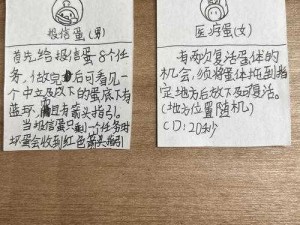 报信蛋(男)
首先,给报信蛋8个任
务,做完后可看见一
个中立及以下的蛋底下有
蓝环,且有箭头指引。
当报信蛋只剩一个任务时
坏蛋会收到红色箭头指引
医疗蛋(女)
有两次复活蛋体的
机会,须将蛋体拖到指
定地方后放下及可复活。
(地方位置随机)
CD:20秒